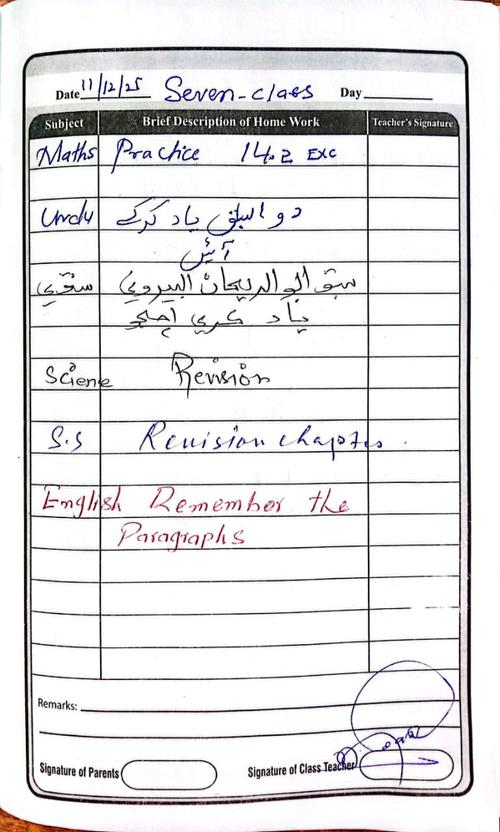 Date 11/12/25 Seven-class Day
Subject Brief Description of Home Work Teacher's Signature
Maths Practice 14.2 EXC
Urdu دو السبق یاد کرکے
آئیں
سنڌي سبق ابو الريحان البيروني
ياد ڪري اچجو
Sciene Revision
S.S Revision chapter.
English Remember the
Paragraphs
Remarks:
Signature of Parents Signature of Class Teacher